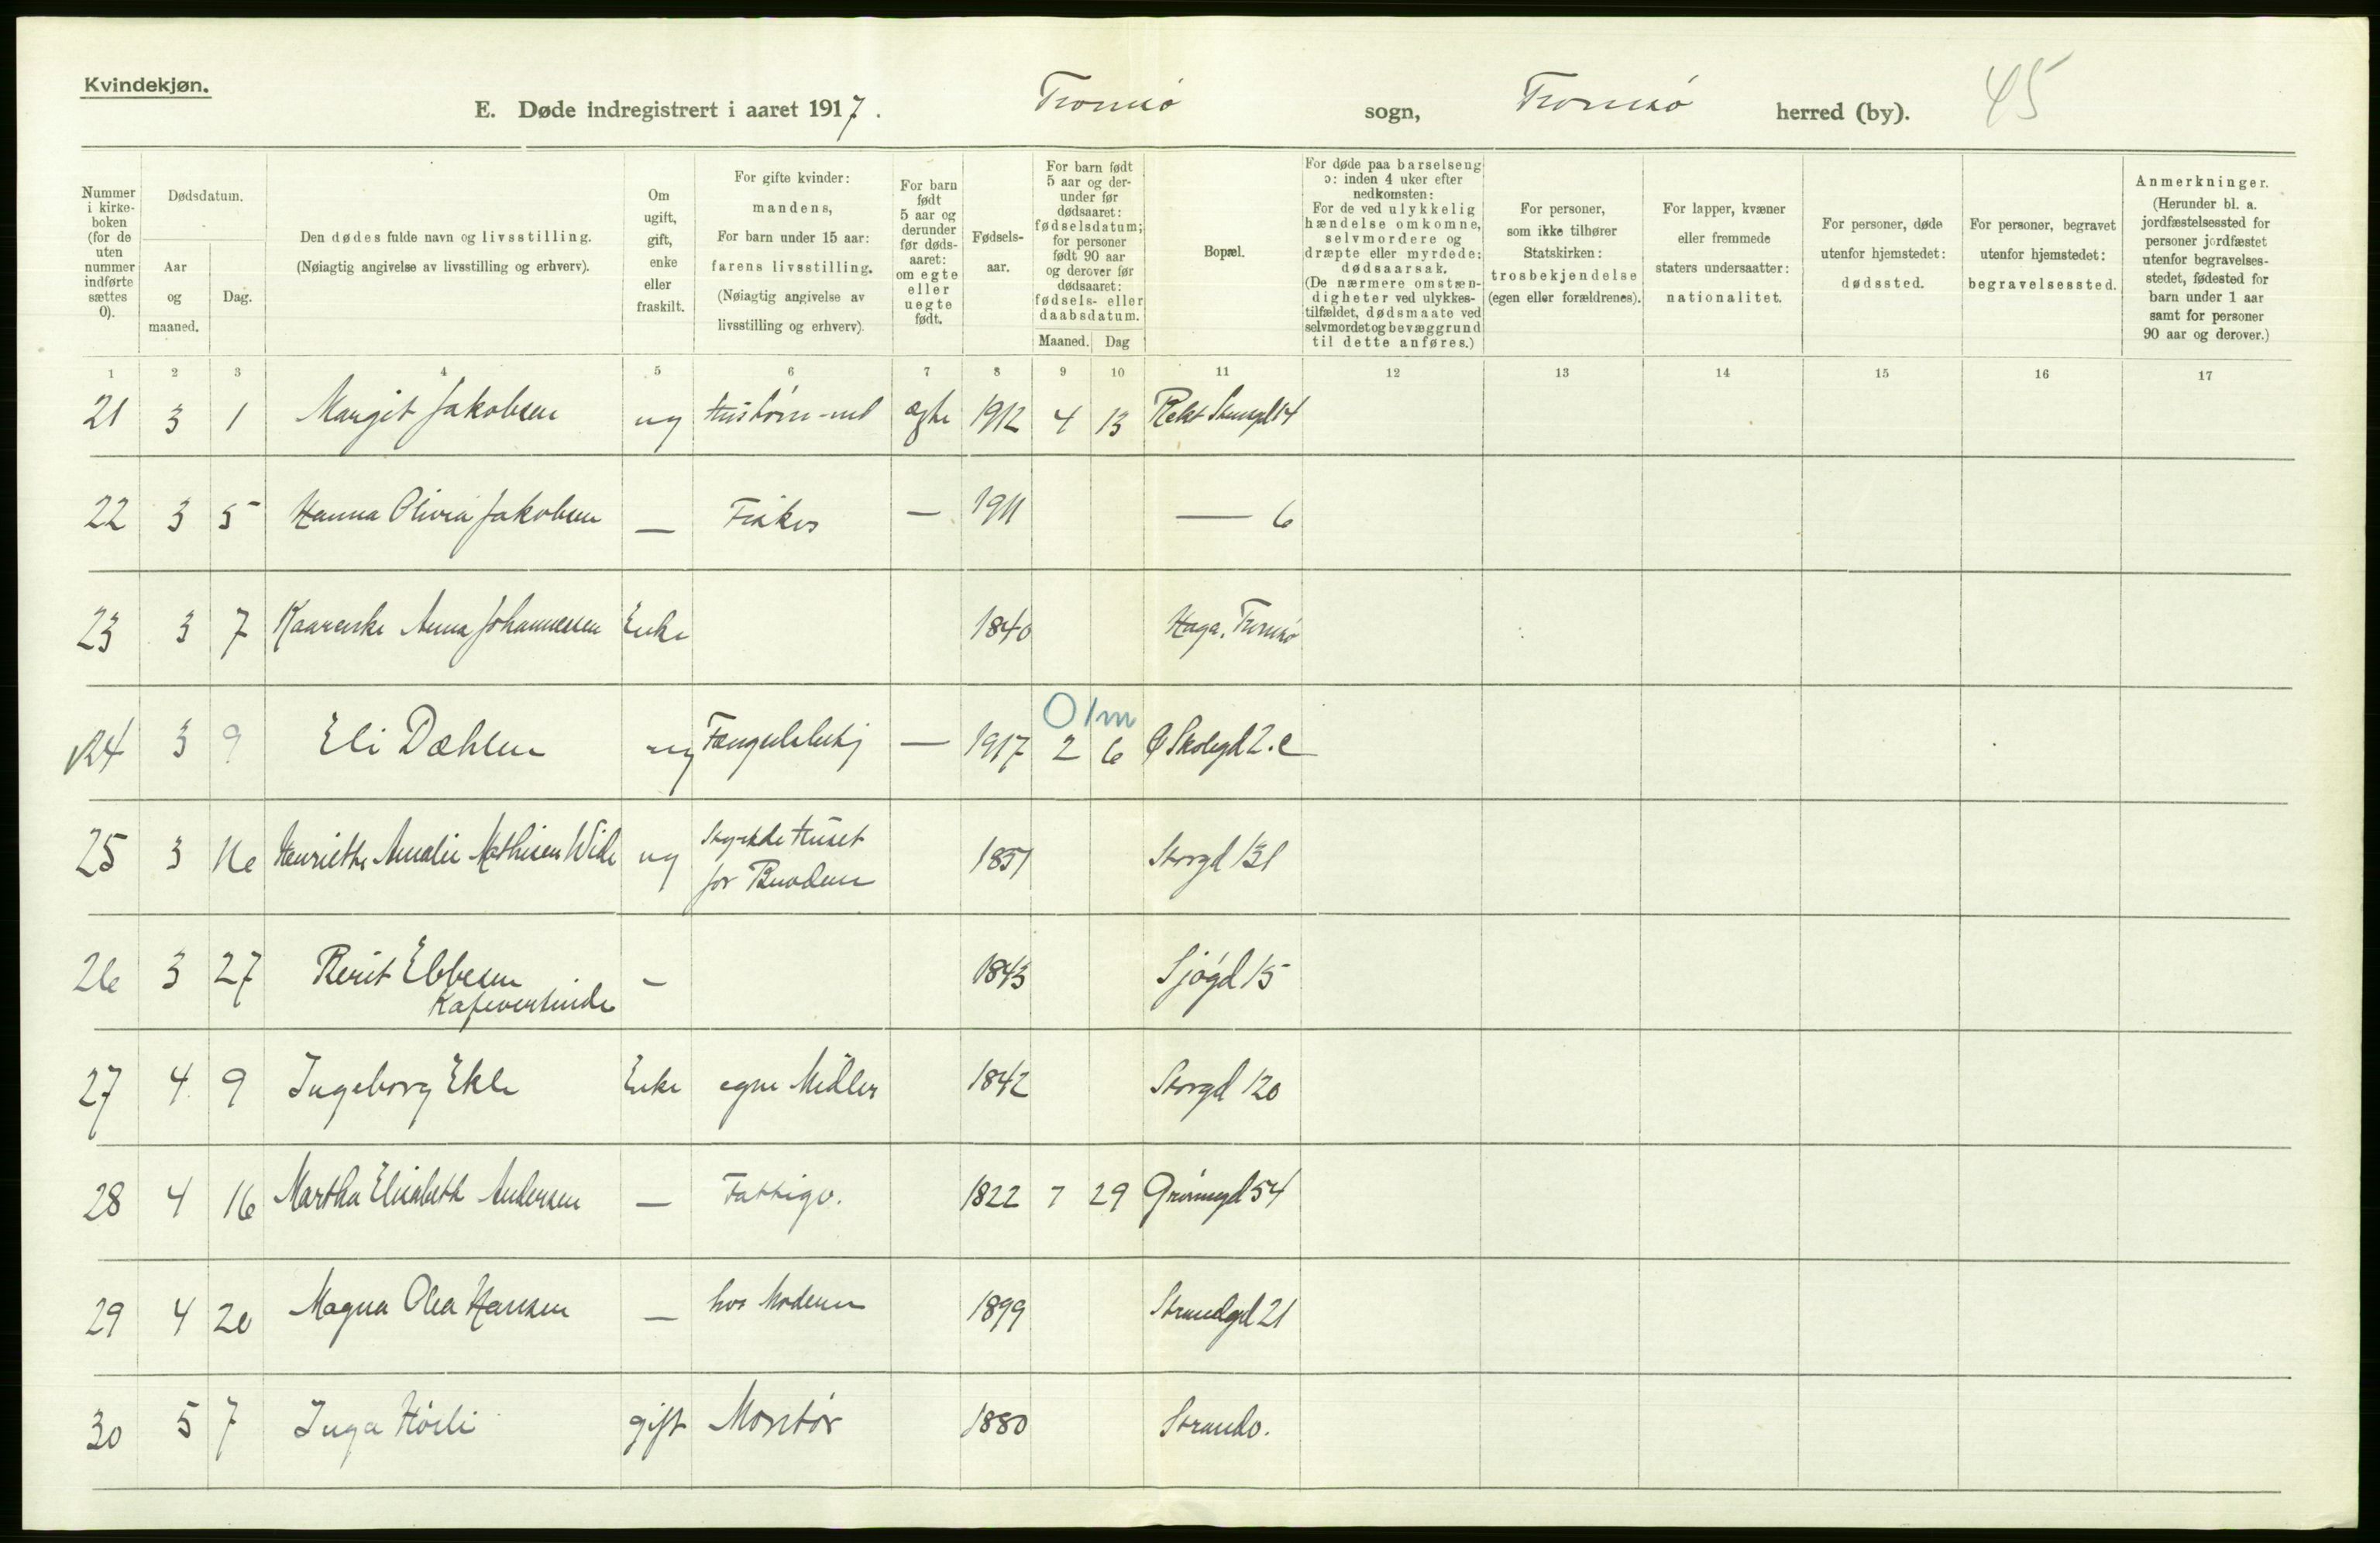 Kvindekjøn.
E. Døde indregistrert i aaret 1917. Tromsø sogn, Tromsø herred (by). 45
Nummer i kirkeboken (for de uten nummer indførte sættes 0).
Dødsdatum.
Aar og maaned.
Dag.
Den dødes fulde navn og livsstilling.
(Nøiagtig angivelse av livsstilling og erhverv).
Om ugift, gift, enke eller fraskilt.
For gifte kvinder: mandens,
For barn under 15 aar: farens livsstilling.
(Nøiagtig angivelse av livsstilling og erhverv).
For barn født 5 aar og derunder før dødsaaret: om egte eller uegte født.
Fødselsaar.
For barn født 5 aar og derunder før dødsaaret: fødselsdatum; for personer født 90 aar og derover før dødsaaret: fødsels- eller daabsdatum.
Maaned. Dag
Bopæl.
For døde paa barselseng ɔ: inden 4 uker efter nedkomsten:
For de ved ulykkelig hændelse omkomne, selvmordere og dræpte eller myrdede: dødsaarsak.
(De nærmere omstændigheter ved ulykkestilfældet, dødsmaate ved selvmordet og bevæggrund til dette anføres.)
For personer, som ikke tilhører Statskirken: trosbekjendelse (egen eller forældrenes).
For lapper, kvæner eller fremmede staters undersaatter: nationalitet.
For personer, døde utenfor hjemstedet: dødssted.
For personer, begravet utenfor hjemstedet: begravelsessted.
Anmerkninger.
(Herunder bl. a. jordfæstelsessted for personer jordfæstet utenfor begravelsesstedet, fødested for barn under 1 aar samt for personer 90 aar og derover.)
1 2 3 4 5 6 7 8 9 10 11 12 13 14 15 16 17
21 3 1 Margit Jakobsen ug ægte 1912 4 13 14
22 3 5 Hanna Olivia Jakobsen — Fisker — 1911 — 6
23 3 7 Anna Johannessen Enke 1840 Haga, Tromsø
0 1m
24 3 9 Eli Dæhlen ug — 1917 2 6 Skolegd 2.
25 3 16 Henriette Amalie Mathisen ug Huset for Broderen 1857 Storgd 131
26 3 27 Berit Ebbesen — 1843 Sjøgd 15
Kafevertinde
27 4 9 Ingeborg Ekle Enke egne Midler 1842 Storgd 120
28 4 16 Martha Elisabeth Andersen — Fattigv. 1822 7 29 Grønnegd 54
29 4 20 Magna Olea Hansen — hos Moderen 1899 Strandgd 21
30 5 7 Inga gift Montør 1880